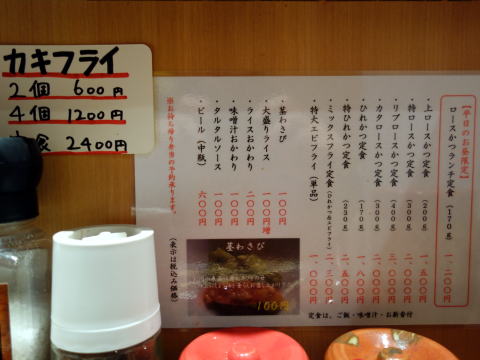 カキフライ
2個 600円
4個 1200円
定食 2400円
【平日のお昼限定】
ロースかつランチ定食(170g) 一、二〇〇円
・上ロースかつ定食(200g) 一、五〇〇円
・特ロースかつ定食(300g) 二、
・リブロースかつ定食(400g) 三、
・カタロースかつ定食(300g) 二、
・ひれかつ定食(170g) 一、八〇〇円
・特ひれかつ定食(230g) 二、五
・ミックスフライ定食(ひれかつ&エビフライ) 二、
・特大エビフライ(単品) 一、
・茎わさび 一〇〇円
・大盛りライス 一〇〇円増
・ライスおかわり 二〇〇円
・味噌汁おかわり 一〇〇円
・タルタルソース 一〇〇円
・ビール(中瓶) 六〇〇円
※お持ち帰り弁当の予約承ります。
(表示は税込み価格)
茎わさび
100円
定食は、ご飯・味噌汁・お新香付